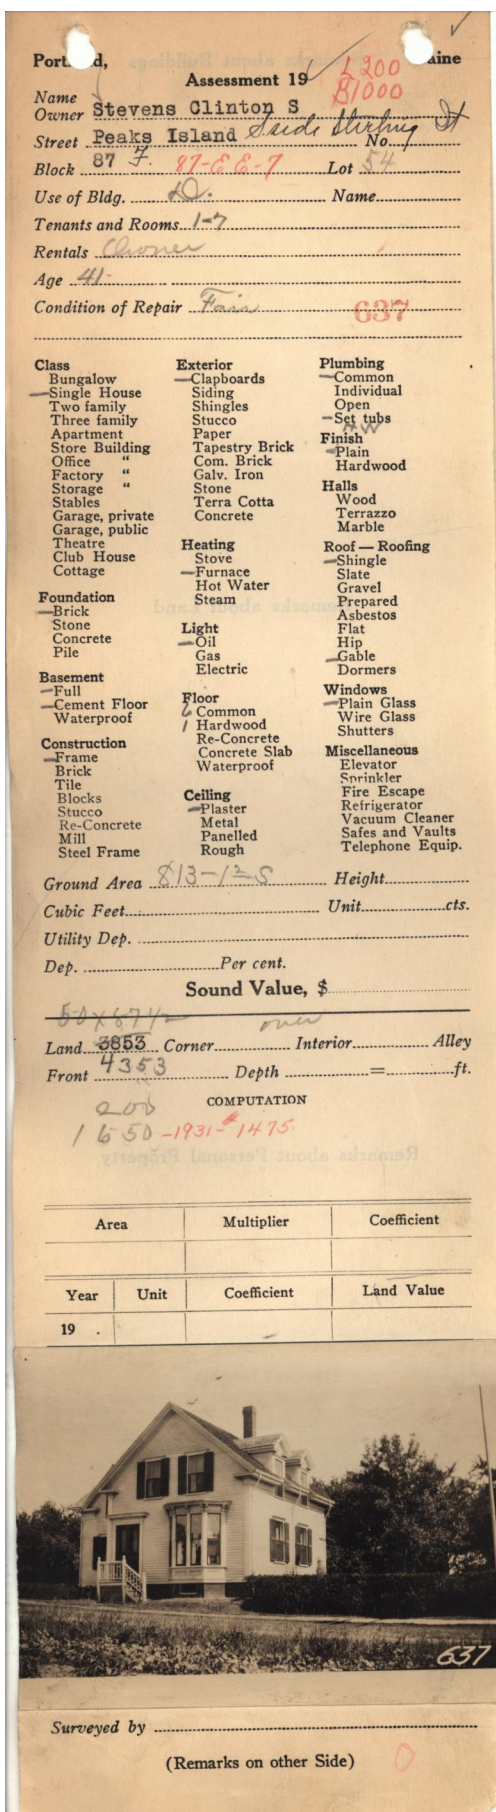 Portland, Maine
Assessment 19
L 200
B1000
Name
Owner Stevens Clinton S
Street Peaks Island S side Sterling St No.
Block 87 F. 87-EE-7 Lot 54
Use of Bldg. D. Name
Tenants and Rooms 1-7
Rentals Owner
Age 41-
Condition of Repair Fair 637
Class
Bungalow
Single House
Two family
Three family
Apartment
Store Building
Office "
Factory "
Storage "
Stables
Garage, private
Garage, public
Theatre
Club House
Cottage
Foundation
Brick
Stone
Concrete
Pile
Basement
Full
Cement Floor
Waterproof
Construction
Frame
Brick
Tile
Blocks
Stucco
Re-Concrete
Mill
Steel Frame
Exterior
Clapboards
Siding
Shingles
Stucco
Paper
Tapestry Brick
Com. Brick
Galv. Iron
Stone
Terra Cotta
Concrete
Heating
Stove
Furnace
Hot Water
Steam
Light
Oil
Gas
Electric
Floor
6 Common
1 Hardwood
Re-Concrete
Concrete Slab
Waterproof
Ceiling
Plaster
Metal
Panelled
Rough
Plumbing
Common
Individual
Open
Set tubs
H W
Finish
Plain
Hardwood
Halls
Wood
Terrazzo
Marble
Roof — Roofing
Shingle
Slate
Gravel
Prepared
Asbestos
Flat
Hip
Gable
Dormers
Windows
Plain Glass
Wire Glass
Shutters
Miscellaneous
Elevator
Sprinkler
Fire Escape
Refrigerator
Vacuum Cleaner
Safes and Vaults
Telephone Equip.
Ground Area 813-1½-S Height
Cubic Feet Unit cts.
Utility Dep.
Dep. Per cent.
Sound Value, $
50 x 87½ over
Land 3853 Corner Interior Alley
Front 4353 Depth = ft.
COMPUTATION
200
1650 -1931-$1475.
Remarks about Personal Property
Area Multiplier Coefficient
Year Unit Coefficient Land Value
19 .
637
Surveyed by
(Remarks on other Side)
0